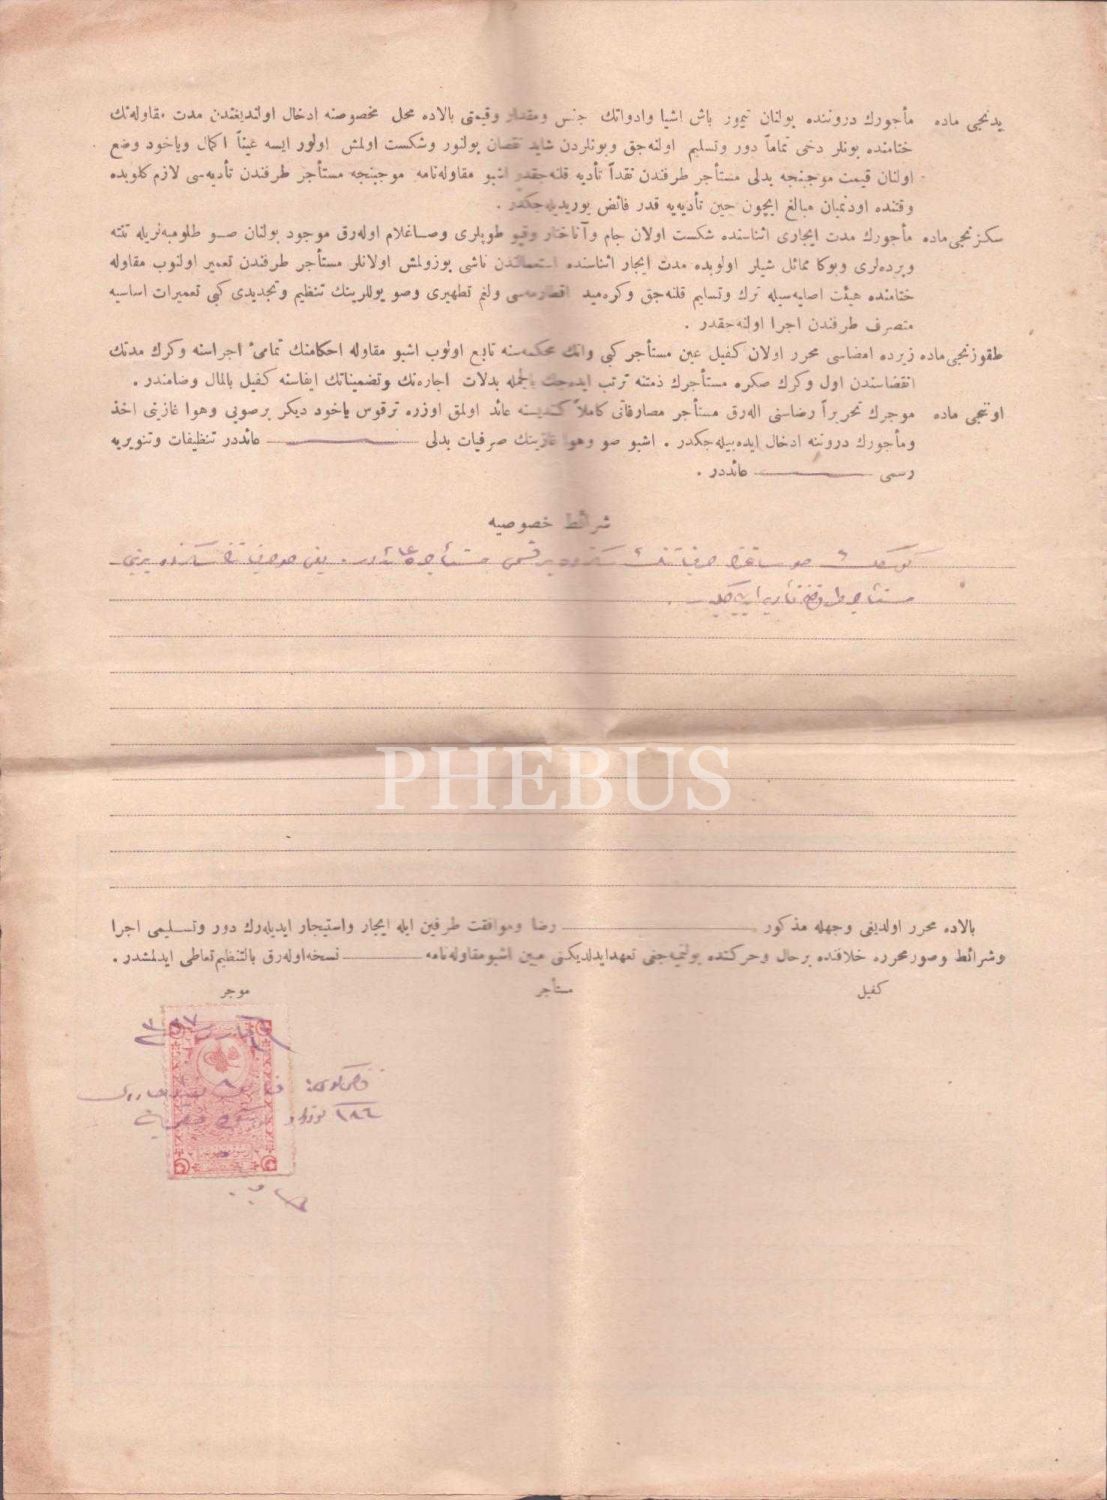 يدنجی ماده مأجورك دروننده بولنان تيمور باش اشيا وادواتك جنس ومقدار وقيمتی بالاده محل مخصوصنه ادخال اولنديغندن مدت مقاوله‌نك
ختامنده بونلر دخی تماماً دور وتسليم اولنه‌جق وبونلردن شايد نقصان بولنور وشكست اولمش اولور ايسه عيناً اكمال وياخود وضع
اولنان قيمت موجبنجه بدلی مستأجر طرفندن نقداً تأديه قلنه‌جقدر اشبو مقاوله‌نامه موجبنجه مستأجر طرفندن تأديه‌سی لازم كلوبده
وقتنده اودنميان مبالغ ايچون حين تأديه‌يه قدر فائض يوريديله‌جكدر .
سكزنجی ماده مأجورك مدت ايجاری اثناسنده شكست اولان جام وآناختار وقپو طوپلری وصاغلام اوله‌رق موجود بولنان صو طلومبه‌لريله تنته
وپرده‌لری وبوكا مماثل شيلر اولوبده مدت ايجار اثناسنده استعمالندن ناشی بوزولمش اولانلر مستأجر طرفندن تعمير اولنوب مقاوله
ختامنده هيئت اصليه‌سيله ترك وتسليم قلنه‌جق وكره‌ميد اقطارمه‌سی ولغم تطهيری وصو يوللرينك تنظيم وتجديدی كبی تعميرات اساسيه
متصرف طرفندن اجرا اولنه‌جقدر .
طقوزنجی ماده زيرده امضاسی محرر اولان كفيل عين مستأجر كبی وانك محكمه‌سنه تابع اولوب اشبو مقاوله احكامنك تمامئ اجراسنه وكرك مدتك
انقضاسندن اول وكرك صكره مستأجرك ذمتنه ترتب ايده‌جك بالجمله بدلات اجاره‌نك وتضميناتك ايفاسنه كفيل بالمال وضامندر .
اوننجی ماده موجرك تحريراً رضاسنی اله‌رق مستأجر مصارفاتی كاملاً كندينه عائد اولمق اوزره ترقوس ياخود ديكر برصويی وهوا غازينی اخذ
ومأجورك دروننه ادخال ايده‌بيله‌جكدر . اشبو صو وهوا غازينك صرفيات بدلی عائددر تنظيفات وتنويريه
رسمی عائددر .
شرائط خصوصيه
مستأجر طرفندن تأديه ايديله‌جكدر
PHEBUS
بالاده محرر اولديغی وجهله مذكور رضا وموافقت طرفين ايله ايجار واستيجار ايديله‌رك دور وتسليمی اجرا
وشرائط وصورمحرره خلافنده برحال وحركتده بولنميه‌جغی تعهدايدلديكنی مبين اشبومقاوله‌نامه نسخه‌اوله‌رق بالتنظيم‌تعاطی ايدلمشدر .
كفيل مستأجر موجر